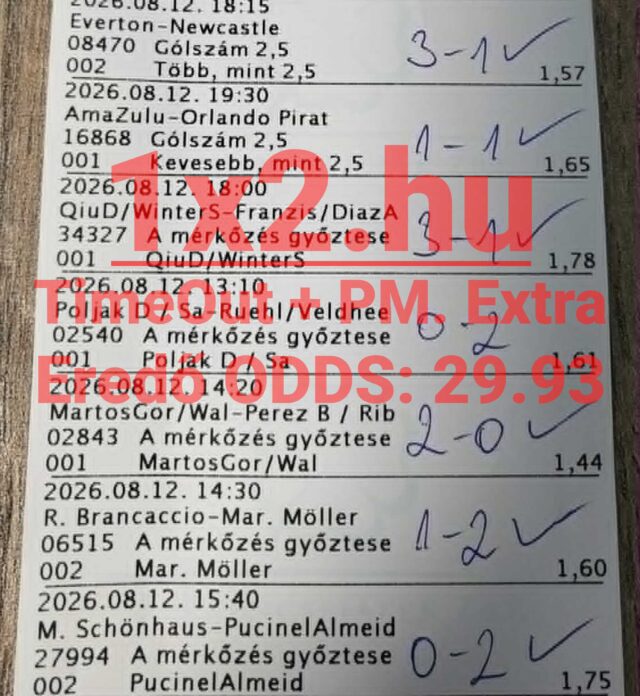 2026.08.12. 18:15
Everton-Newcastle
08470 Gólszám 2,5
002 Több, mint 2,5 1,57
3-1 ✓
2026.08.12. 19:30
AmaZulu-Orlando Pirat
16868 Gólszám 2,5
001 Kevesebb, mint 2,5 1,65
1-1 ✓
2026.08.12. 18:00
QiuD/WinterS-Franzis/DiazA
34327 A mérkőzés győztese
001 QiuD/WinterS 1,78
3-1 ✓
1x2.hu
TimeOut + PM, Extra
Eredő ODDS: 29.93
2026.08.12. 13:10
Poljak D / Sa-Ruehl/Veldhee
02540 A mérkőzés győztese
001 Poljak D / Sa 1,61
0-2
2026.08.12. 14:20
MartosGor/Wal-Perez B / Rib
02843 A mérkőzés győztese
001 MartosGor/Wal 1,44
2-0 ✓
2026.08.12. 14:30
R. Brancaccio-Mar. Möller
06515 A mérkőzés győztese
002 Mar. Möller 1,60
1-2 ✓
2026.08.12. 15:40
M. Schönhaus-PucinelAlmeid
27994 A mérkőzés győztese
002 PucinelAlmeid 1,75
0-2 ✓